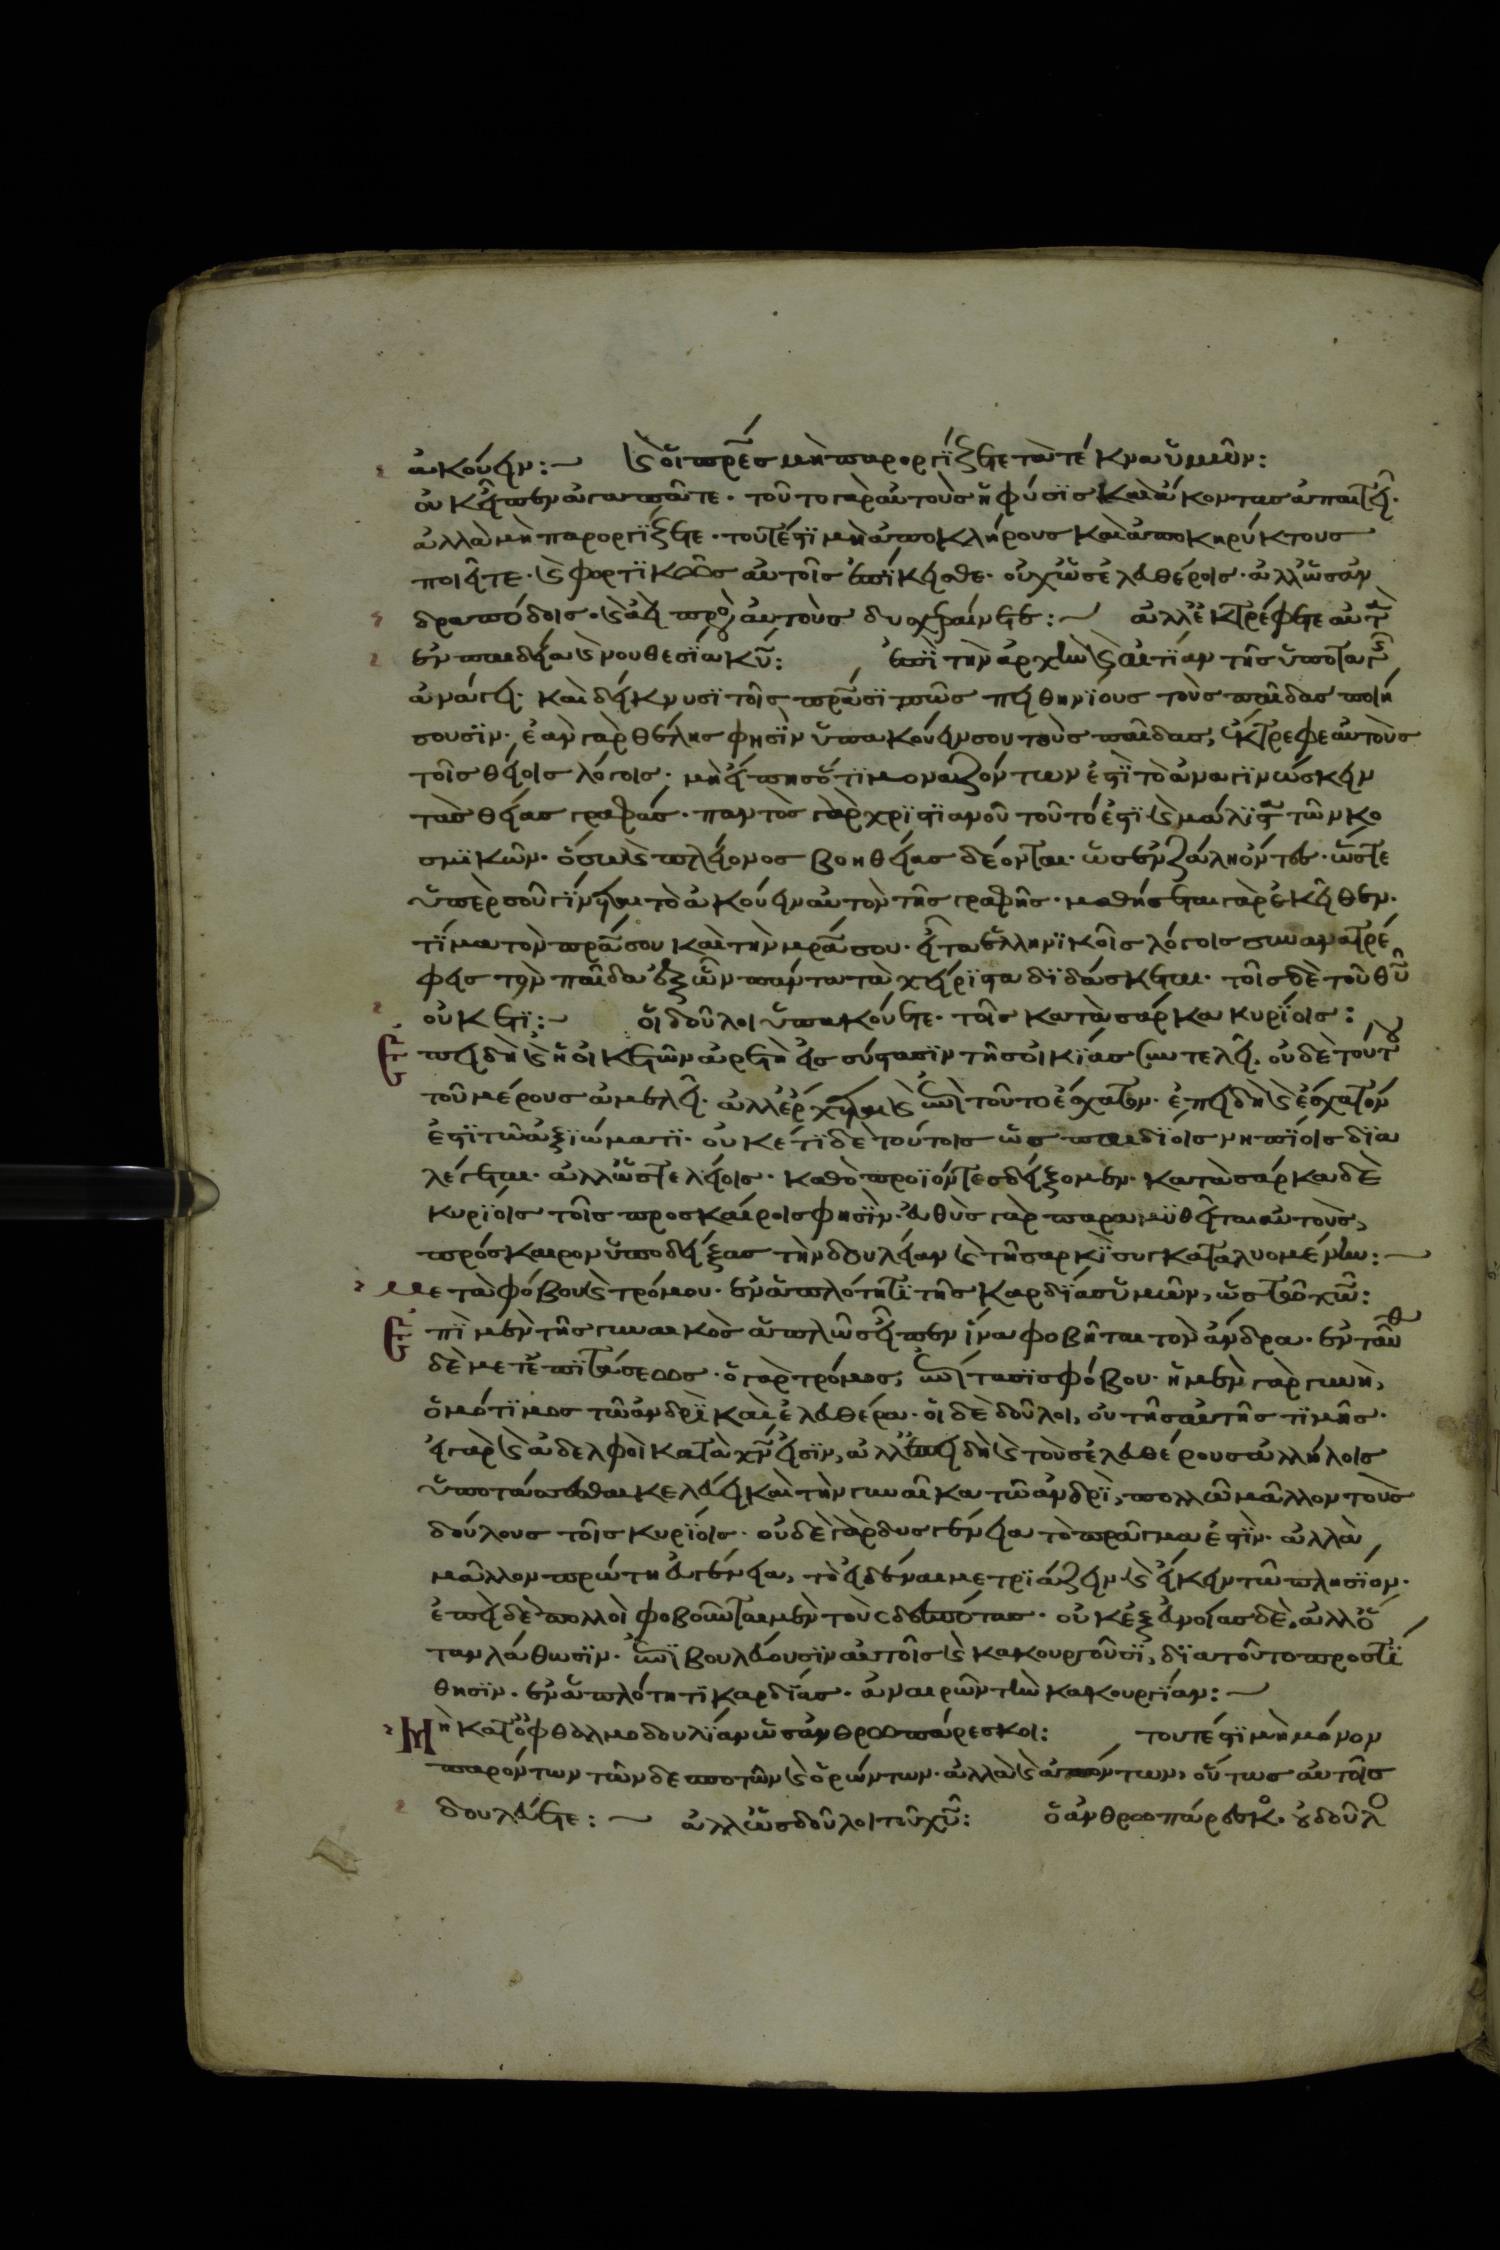 ἀκούειν:~ ϗ οἱ πρ̅ες μὴ παροργίζετε τὰ τέκνα ὑμῶν:
οὐκ εἶπεν ἀγαπᾶτε· τοῦτο γὰρ αὐτοὺς ἡ φύσις καὶ ἄκοντας ἀπαιτεῖ·
ἀλλὰ μὴ παροργίζετε· τουτέστι μὴ ἀποκλήρους καὶ ἀποκηρύκτους
ποιεῖτε· ϗ φορτικῶς αὐτοῖς ἐπίκεισθε· οὐχ ὡς ἐλευθέροις· ἀλλ' ὡς ἀν
δραπόδοις· ϗ ἀεὶ πρὸς αὐτοὺς δυσχεραίνετε:~ ἀλλ' ἐκτρέφετε αὐτὰ
ἐν παιδεία ϗ νουθεσία κ̅υ: ἐπὶ τὴν ἀρχὴν ϗ αἰτίαν τῆς ὑποταγῆς
ἀνάγει· καὶ δείκνυσι τοῖς πρ̅ασι πῶς πειθηνίους τοὺς παῖδας ποιή
σουσιν· ἐὰν γὰρ θέλης φησὶν ὑπακούειν σου τοὺς παῖδας, ἔκτρεφε αὐτοὺς
τοῖς θείοις λόγοις· μὴ εἴπης ὅτι μοναζόντων ἐστὶ τὸ ἀναγινώσκειν
τὰς θείας γραφάς· παντὸς γὰρ χριστιανοῦ τοῦτό ἐστι ϗ μάλιστα τῶν κο
σμικῶν· ὅσω ϗ πλείονος βοηθείας δέονται· ὡς ἐν ζάλη ὄντες· ὥστε
ὑπὲρ σοῦ γίνεται τὸ ἀκούειν αὐτὸν τῆς γραφῆς· μαθήσεται γὰρ ἐκεῖθεν·
τίμα τὸν πρ̅α σου καὶ τὴν μρ̅α σου· εἶτα ἑλληνικοῖς λόγοις συνανατρέ
φεις τὸν παῖδα ἐξ ὧν πάντα τὰ χείριστα διδάσκεται· τοῖς δὲ τοῦ θ̅υ
οὐκέτι:~ οἱ δοῦλοι ὑπακούετε· τοῖς κατὰ σάρκα κυρίοις:
Ἐπειδὴ ϗ ἡ οἰκετῶν ἀρετὴ εἰς σύστασιν τῆς οἰκίας συντελεῖ, οὐδὲ τούτου
τοῦ μέρους ἀμελεῖ· ἀλλ' ἔρχεται ϗ ἐπὶ τοῦτο ἔσχατον· ἐπειδὴ ϗ ἔσχατόν
ἐστι τῶ ἀξιώματι· οὐκέτι δὲ τούτοις ὡς παιδίοις νηπίοις δια
λέγεται· ἀλλ' ὡς τελείοις· καθὸ προϊόντες δείξομεν· κατὰ σάρκα δὲ
κυρίοις τοῖς προσκαίροις φησὶν· εὐθὺς γὰρ παραμυθεῖται αὐτοὺς,
πρόσκαιρον ὑποδείξας τὴν δουλείαν ϗ τῆ σαρκὶ συγκαταλυομένην:~
Μετὰ φόβου ϗ τρόμου· ἐν ἁπλότητι τῆς καρδίας ὑμῶν, ὡς τῶ χ̅ω:
Ἐπὶ μὲν τῆς γυναικὸς ἁπλῶς εἶπεν ἵνα φοβῆται τὸν ἄνδρα· ἐνταῦθα
δὲ μετ' ἐπιτάσεως· ὁ γὰρ τρόμος, ἐπίτασις φόβου· ἡ μὲν γὰρ γυνὴ,
ὁμότιμος τῶ ἀνδρὶ καὶ ἐλευθέρα· οἱ δὲ δοῦλοι, οὐ τῆς αὐτῆς τιμῆς·
εἰ γὰρ ϗ ἀδελφοὶ κατὰ χ̅ν εἰσὶν, ἀλλ' ἐπειδὴ ϗ τοὺς ἐλευθέρους ἀλλήλοις
ὑποτάσσεσθαι κελεύει καὶ τὴν γυναῖκα τῶ ἀνδρὶ, πολλῶ μᾶλλον τοὺς
δούλους τοῖς κυρίοις· οὐδὲ γὰρ δυσγένεια τὸ πρᾶγμα ἐστὶν· ἀλλὰ
μᾶλλον πρώτη εὐγένεια, τὸ εἰδέναι μετριάζειν ϗ εἴκειν τῶ πλησίον·
ἐπεὶ δὲ πολλοὶ φοβοῦνται μὲν τοὺς δεσπότας· οὐκ ἐξ εὐνοίας δὲ, ἀλλ' ὅ
ταν λάθωσιν· ἐπιβουλεύουσιν αὐτοῖς ϗ κακουργοῦσι, διατοῦτο προστί
θησιν· ἐν ἁπλότητι καρδίας· ἀναιρῶν τὴν κακουργίαν:~
Μὴ κατ' ὀφθαλμοδουλίαν ὡς ἀνθρωπάρεσκοι: τουτέστι μὴ μόνον
παρόντων τῶν δεσποτῶν ϗ ὁρώντων· ἀλλὰ ϗ ἀπόντων, οὕτως αὐτοῖς
δουλεύετε:~ ἀλλ' ὡς δοῦλοι τοῦ χ̅υ: ὁ ἀνθρωπάρεσκος οὐ δοῦλο